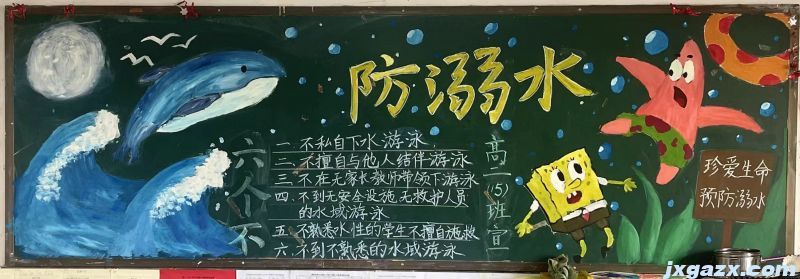 防溺水
六个不
一 不私自下水游泳
二 不擅自与他人结伴游泳
三 不在无家长教师带领下游泳
四 不到无安全设施、无救护人员
的水域游泳
五 不熟悉水性的学生不擅自施救
六 不到不熟悉的水域游泳
高二(5)班宣
珍爱生命
预防溺水
jxgazx.com